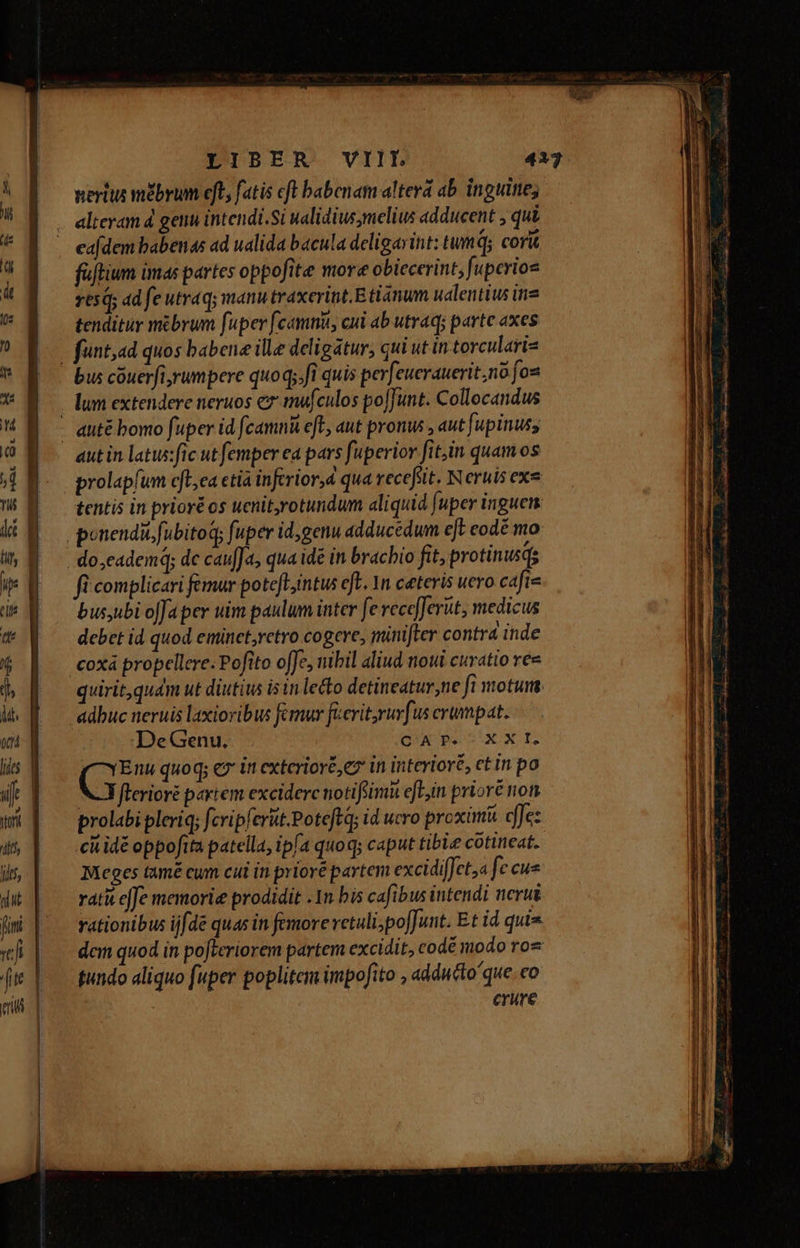 LIBER VIII. 427
nerius mēbrum est, satis est habenam alterā ab inguine,
alteram à genu intendi. Si ualidius, melius adducent, qui
easdem habenas ad ualida bacula deligarint: tumq; corū
fustium imas partes oppositæ more obiecerint, superio=
resq; ad se utraq; manu traxerint. Etiānum ualentius in=
tenditur mēbrum super scamnū, cui ab utraq; parte axes
sunt, ad quos habenæ illæ deligātur, qui ut in torculari=
bus cōuersi, rumpere quoq;, si quis perseuerauerit, nō so=
lum extendere neruos & musculos possunt. Collocandus
autē homo super id scamnū est, aut pronus, aut supinus,
aut in latus: sic ut semper ea pars superior sit, in quam os
prolapsum est, ea etiā inferior, à qua recessit. Neruis ex=
tentis in priorē os uenit, rotundum aliquid super inguen
ponendū, subitoq; super id, genu adducēdum est eodē mo
do, eademq; de caussa, qua idē in brachio fit, protinusq;
si complicari femur potest, intus est. In cæteris uero casi=
bus, ubi ossa per uim paulum inter se recesserūt, medicus
debet id quod eminet, retro cogere, minister contrà inde
coxā propellere. Posito osse, nihil aliud noui curatio re=
quirit, quàm ut diutius is in lecto detineatur, ne si motum
adhuc neruis laxioribus femur fuerit, rursus erumpat.
De Genu. CAP. XXI.
GEnu quoq; & in exteriorē, & in interiorē, et in po
steriorē partem excidere notissimū est, in priorē non
prolabi pleriq; scripserūt. Potestq; id uero proximū esse:
cū idē opposita patella, ipsa quoq; caput tibiæ cōtineat.
Meges tamē eum cui in priorē partem excidisset, a se cu=
ratū esse memoriæ prodidit. In his casibus intendi nerui
rationibus ijsdē quas in femore retuli, possunt. Et id qui=
dem quod in posteriorem partem excidit, eodē modo ro=
tundo aliquo super poplitem imposito, adductoque eo
crure